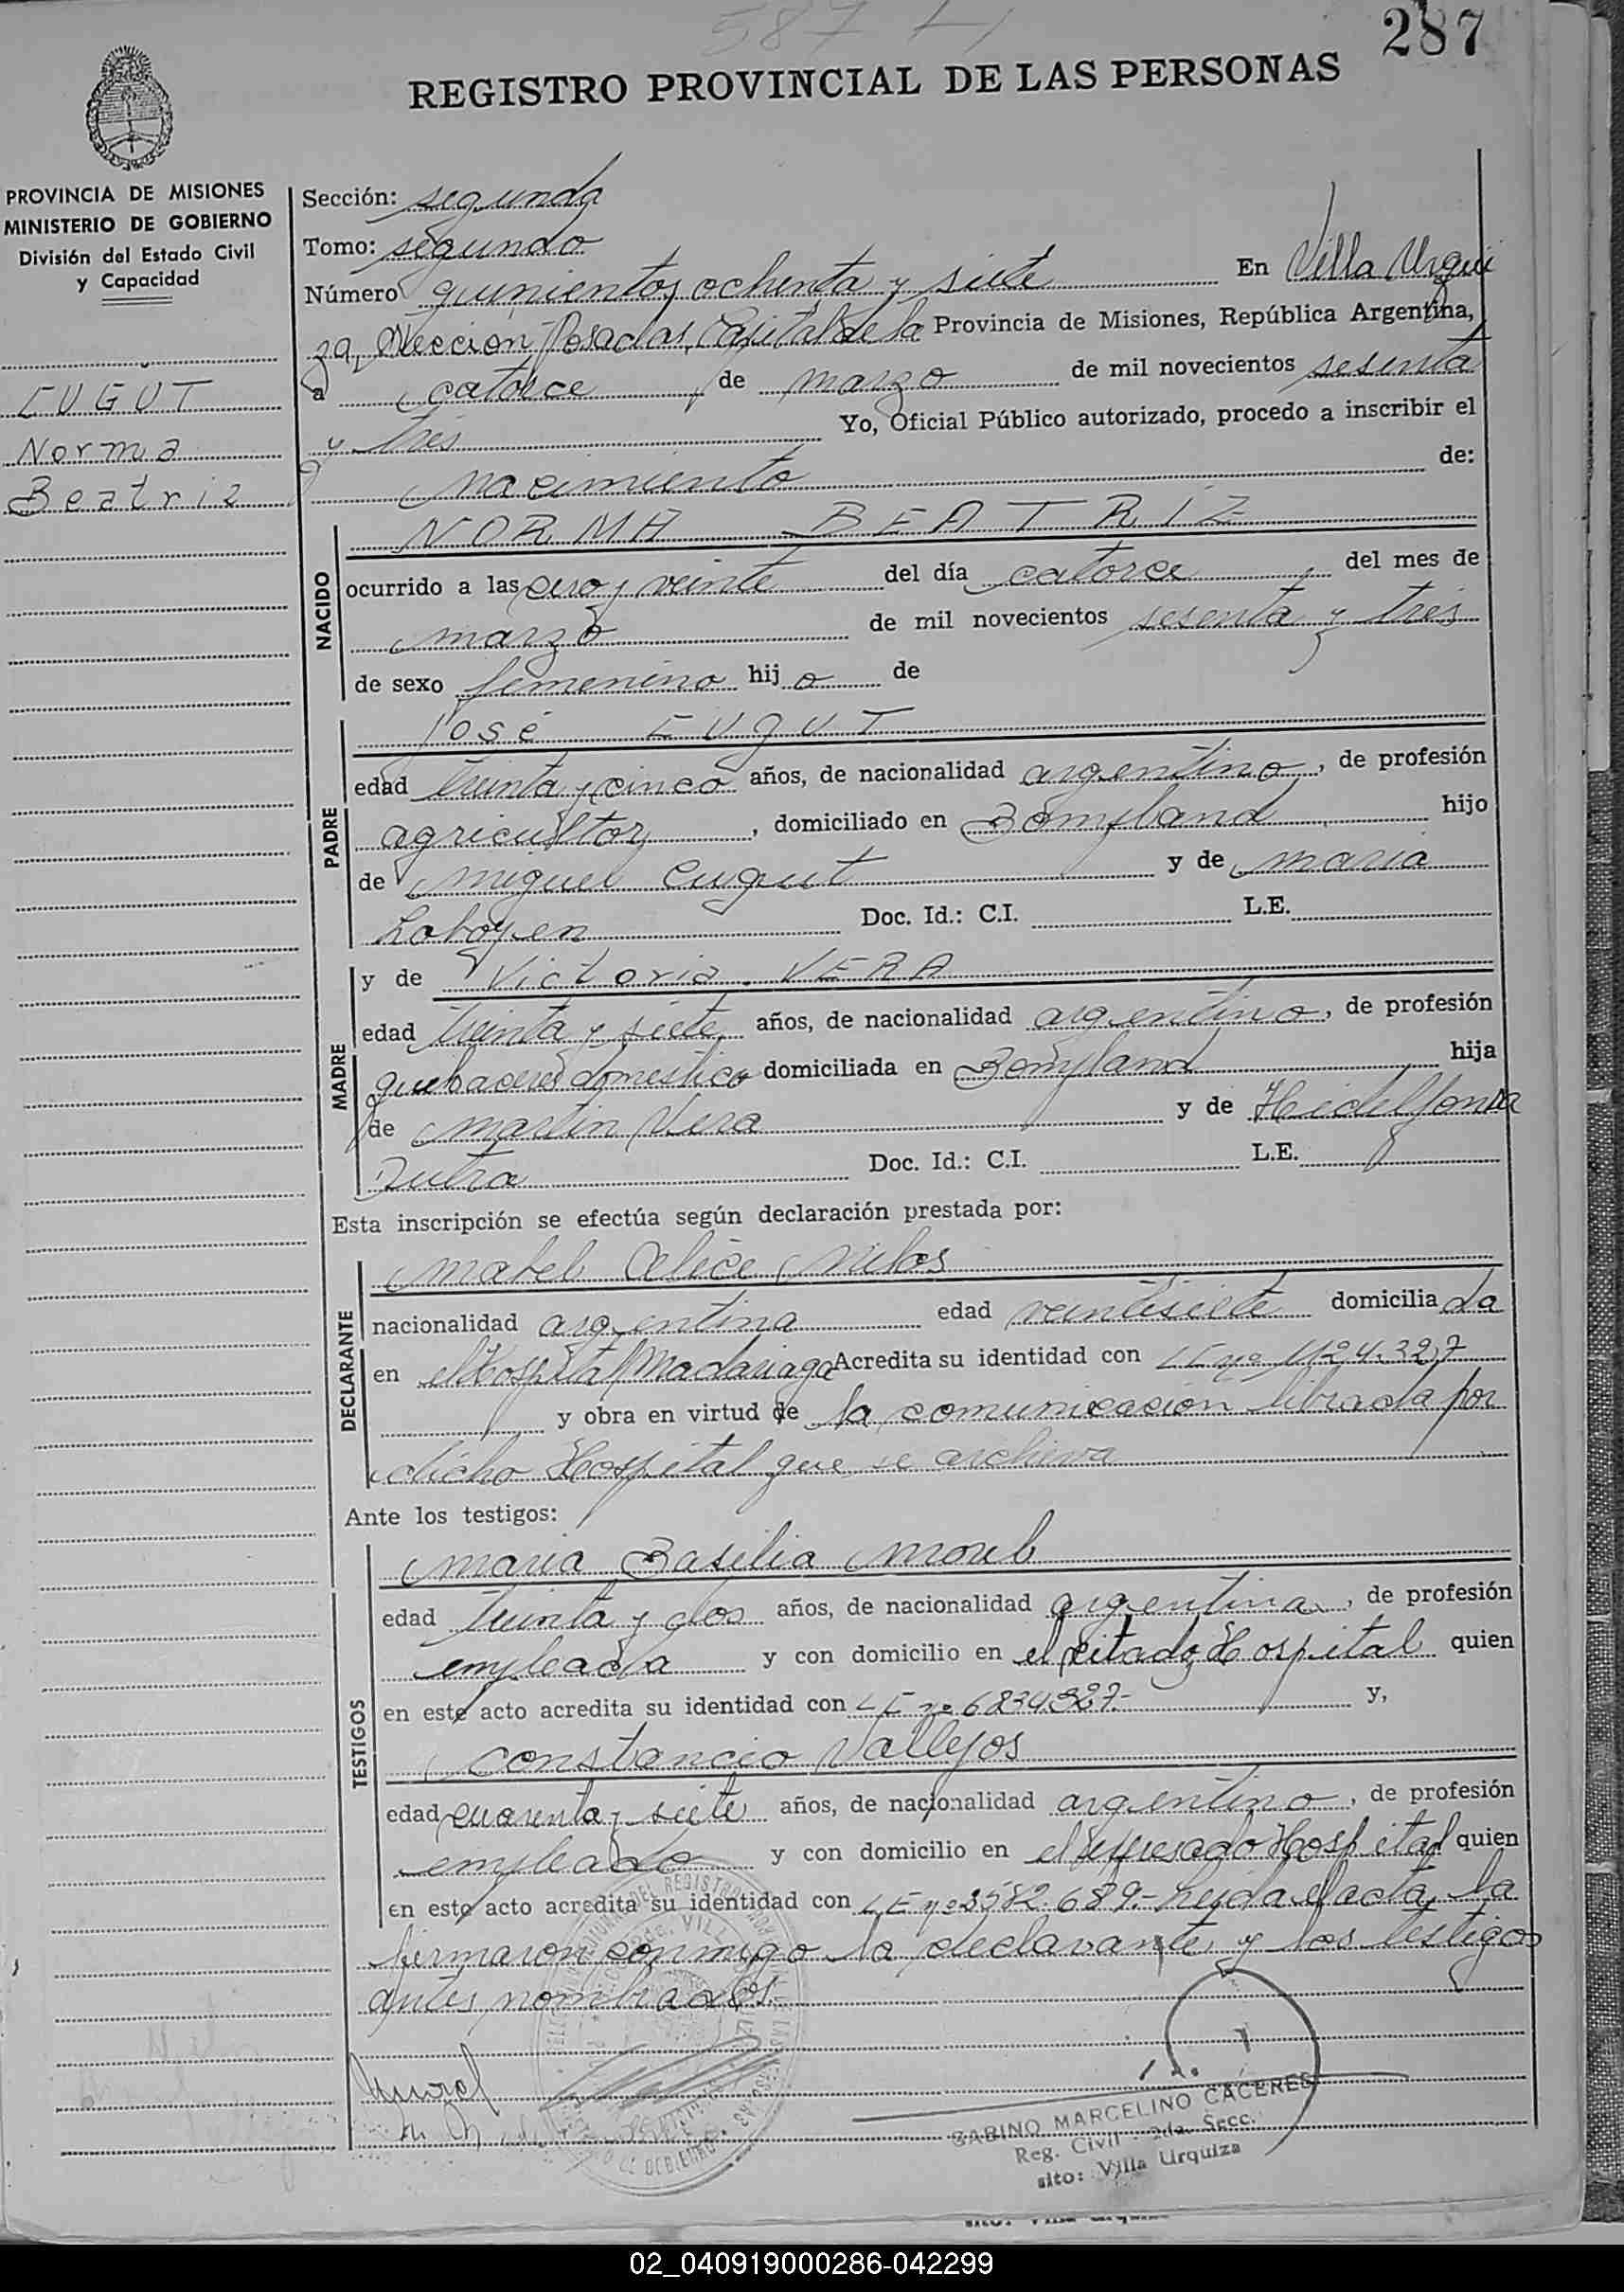 587
287
REGISTRO PROVINCIAL DE LAS PERSONAS
PROVINCIA DE MISIONES
MINISTERIO DE GOBIERNO
División del Estado Civil
y Capacidad
CUGUT
Norma
Beatriz
Sección: segunda
Tomo: segundo
Número quinientos ochenta y siete En Villa Urqui
za, Sección Posadas, Capital de la Provincia de Misiones, República Argentina,
a catorce de marzo de mil novecientos sesenta
y tres Yo, Oficial Público autorizado, procedo a inscribir el
nacimiento de:
NACIDO
NORMA BEATRIZ
ocurrido a las cero y veinte del día catorce del mes de
marzo de mil novecientos sesenta y tres
de sexo femenino hij a de
PADRE
José CUgUT
edad treinta y cinco años, de nacionalidad argentino, de profesión
agricultor, domiciliado en Bompland hijo
de Miguel Cugut y de Maria
Doc. Id.: C.I. L.E.
MADRE
y de Victoria VERA
edad treinta y siete años, de nacionalidad argentina, de profesión
quehaceres domestico domiciliada en Bompland hija
de Martin Vera y de
Dutra Doc. Id.: C.I. L.E.
Esta inscripción se efectúa según declaración prestada por:
DECLARANTE
Mabel Alice
nacionalidad argentina edad veintisiete domicilia da
en el Hospital Madariaga Acredita su identidad con
y obra en virtud de la comunicación librada por
dicho Hospital que se archiva
Ante los testigos:
TESTIGOS
Maria Basilia
edad treinta y dos años, de nacionalidad argentina, de profesión
empleada y con domicilio en el citado Hospital quien
en este acto acredita su identidad con LE nº 6834327.- y,
Constancio Vallejos
edad cuarenta y siete años, de nacionalidad argentino, de profesión
empleado y con domicilio en el expresado Hospital quien
en este acto acredita su identidad con LE nº 3582.689.- Leida el acta, la
firmaron conmigo la declarante y los testigos
antes nombrados.-
SABINO MARCELINO CACERES
Reg. Civil 2da. Secc.
sito: Villa Urquiza
02_040919000286-042299